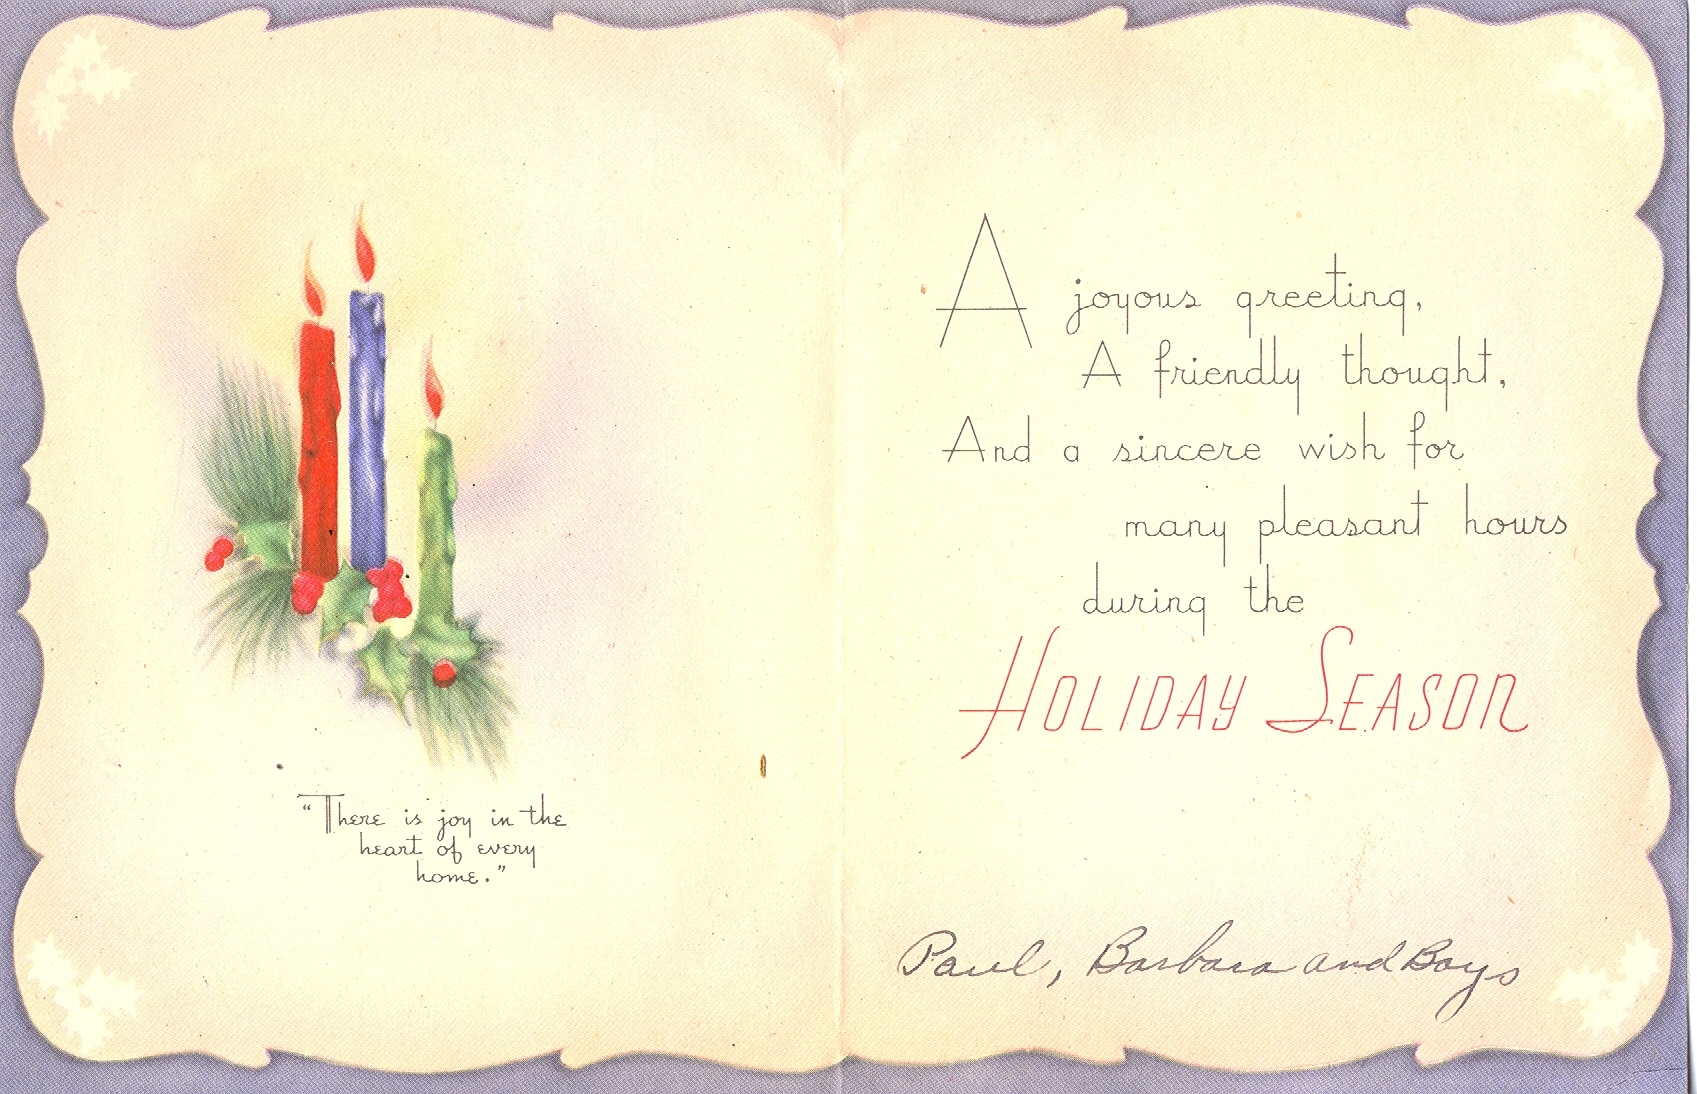 "There is joy in the
heart of every
home."
A joyous greeting,
A friendly thought,
And a sincere wish for
many pleasant hours
during the
HOLIDAY SEASON
Paul, Barbara and Boys